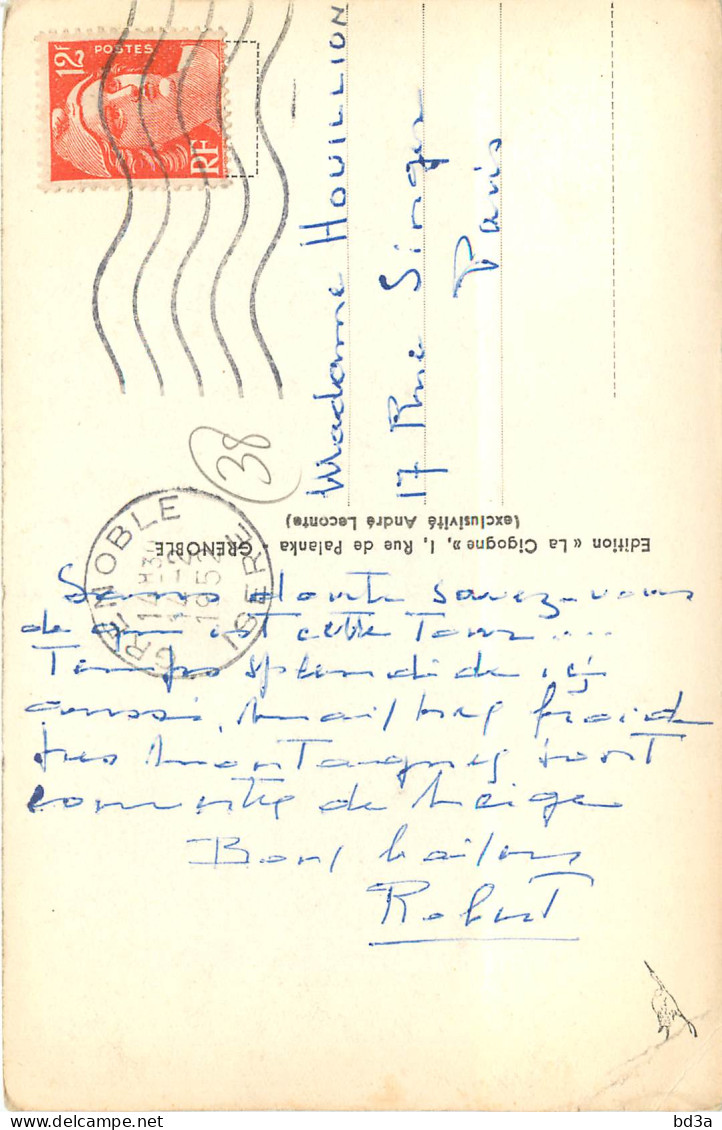 12F
POSTES
RF
Madame HOUILLION
17 Rue Singer
Paris
38
GRENOBLE
14H30
14-2
195
ISERE
Edition « La Cigogne », 1, Rue de Palanka - GRENOBLE
(exclusivité André Leconte)
Sans doute savez-vous
de qui est cette Tour...
Temps splendide ici
aussi, mais très froid
les montagnes sont
couvertes de neige
Bons baisers
Robert
bd3a